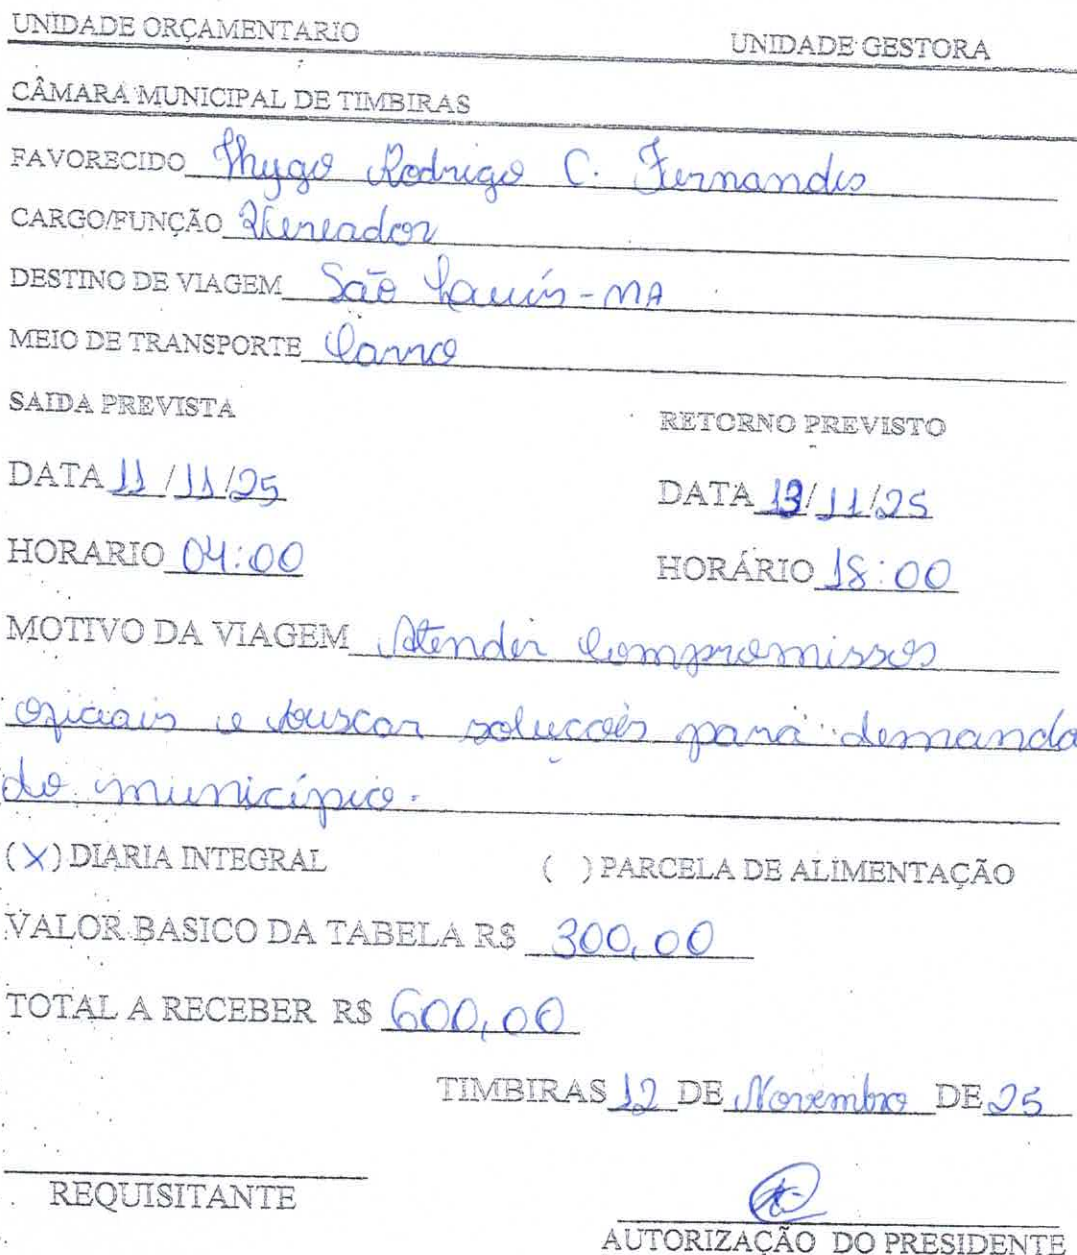 UNIDADE ORÇAMENTARIO UNIDADE GESTORA
CÂMARA MUNICIPAL DE TIMBIRAS
FAVORECIDO Thygo Rodrigo C. Fernandes
CARGO/FUNÇÃO Vereador
DESTINO DE VIAGEM São Luís-MA
MEIO DE TRANSPORTE Carro
SAIDA PREVISTA RETORNO PREVISTO
DATA 11/11/25 DATA 13/11/25
HORARIO 04:00 HORÁRIO 18:00
MOTIVO DA VIAGEM Atender Compromissos
oficiais e buscar solucoês para demanda
do município.
(X) DIARIA INTEGRAL ( ) PARCELA DE ALIMENTAÇÃO
VALOR BASICO DA TABELA R$ 300,00
TOTAL A RECEBER R$ 600,00
TIMBIRAS 12 DE Novembro DE 25
REQUISITANTE
AUTORIZAÇÃO DO PRESIDENTE